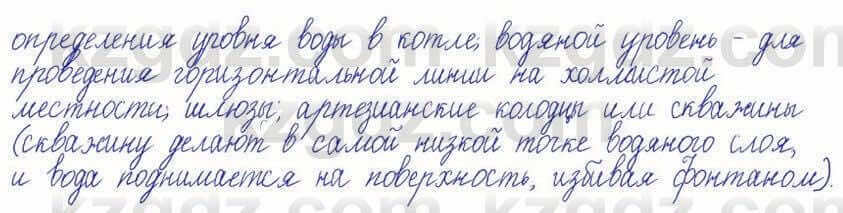 определения уровня воды в котле; водяной уровень – для
проведения горизонтальной линии на холмистой
местности; шлюзы; артезианские колодцы или скважины
(скважину делают в самой низкой точке водяного слоя,
и вода поднимается на поверхность, избивая фонтаном).